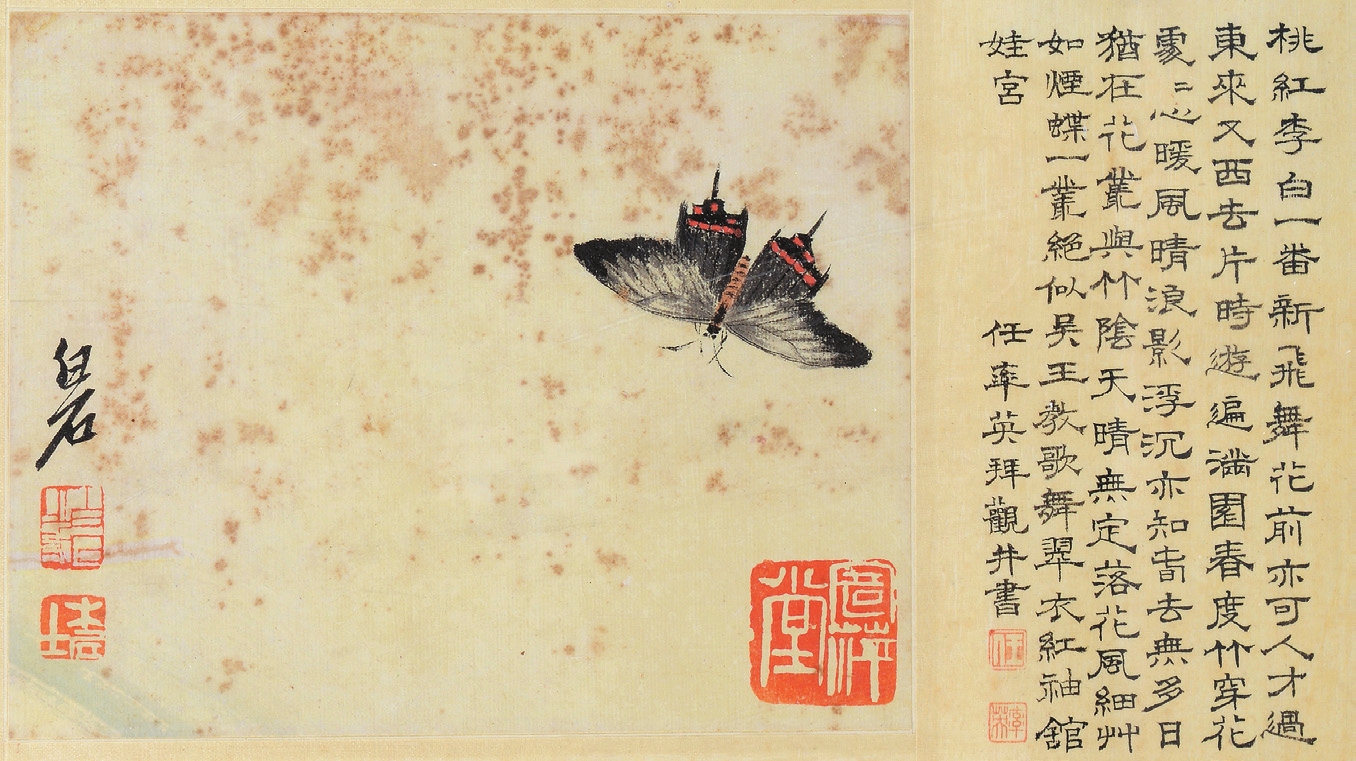 桃紅李白一番新飛舞花前亦可人才過
東來又西去片時遊遍滿園春度竹穿花
處〻心暖風晴浪影浮沉亦知春去無多日
猶在花叢與竹陰天晴無定落花風細艸
如煙蝶一叢絕似吳王教歌舞翠衣紅袖館
娃宮
任率英拜觀并書
任
率英
寄萍堂
白石